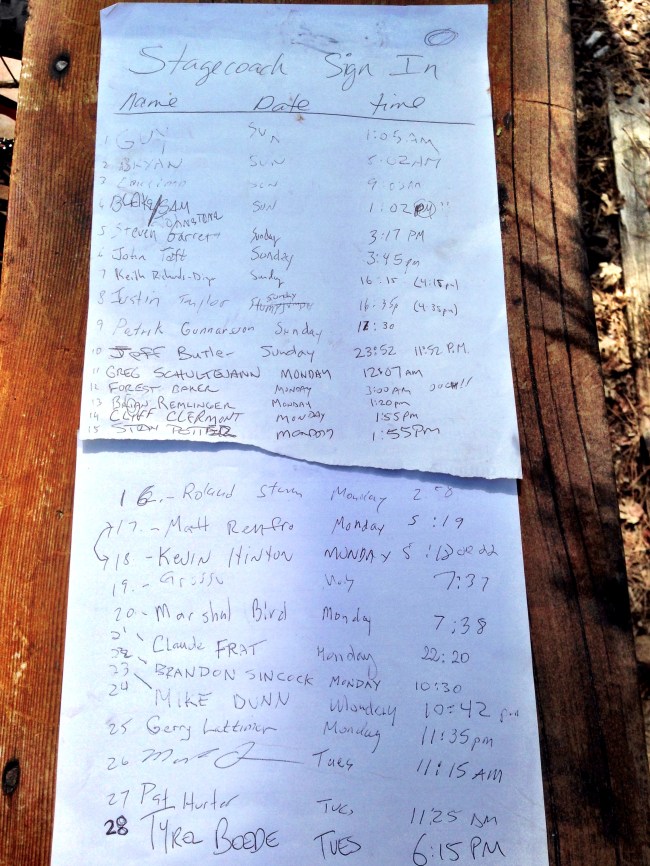 Stagecoach Sign In
Name Date Time
1 GUY SUN 1:05 AM
2 BRYAN SUN 5:02 AM
3 SUN
4 BLAKE/SAM SUN 1:02 PM
5 Steven Garrett Sunday 3:17 PM
6 John Taft Sunday 3:45 pm
7 Keith Richards-Dinger Sunday 16:15 (4:15pm)
8 Justin Taylor Sunday 16:35 (4:35pm)
9 Petrik Gunnarsson Sunday :30
10 JEFF Butler Sunday 23:52 11:52 P.M.
11 GREG SCHULTEJANN MONDAY 12:07 AM
12 FOREST BAKER MONDAY 3:00 AM OUCH!!
13 BRIAN REMLINGER MONDAY 1:20pm
14 CLIFF CLERMONT MONDAY 1:55pm
15 MONDAY 1:55PM
16.- Roland Sturm Monday
17.- Matt Renfro Monday 5:19
18 - KEVIN HINTON MONDAY 5:13
19.- 7:37
20 - Marshal Bird Monday 7:38
21 Claude FRAT Monday 22:20
22
23 BRANDON SINCOCK MONDAY 10:30
24 MIKE DUNN Monday 10:42 pm
25 Gerry Lattimier Monday 11:35pm
26 Tues 11:15 AM
27 Pat Hurter TUES 11:25 AM
28 TYRA BOEDE TUES 6:15 PM